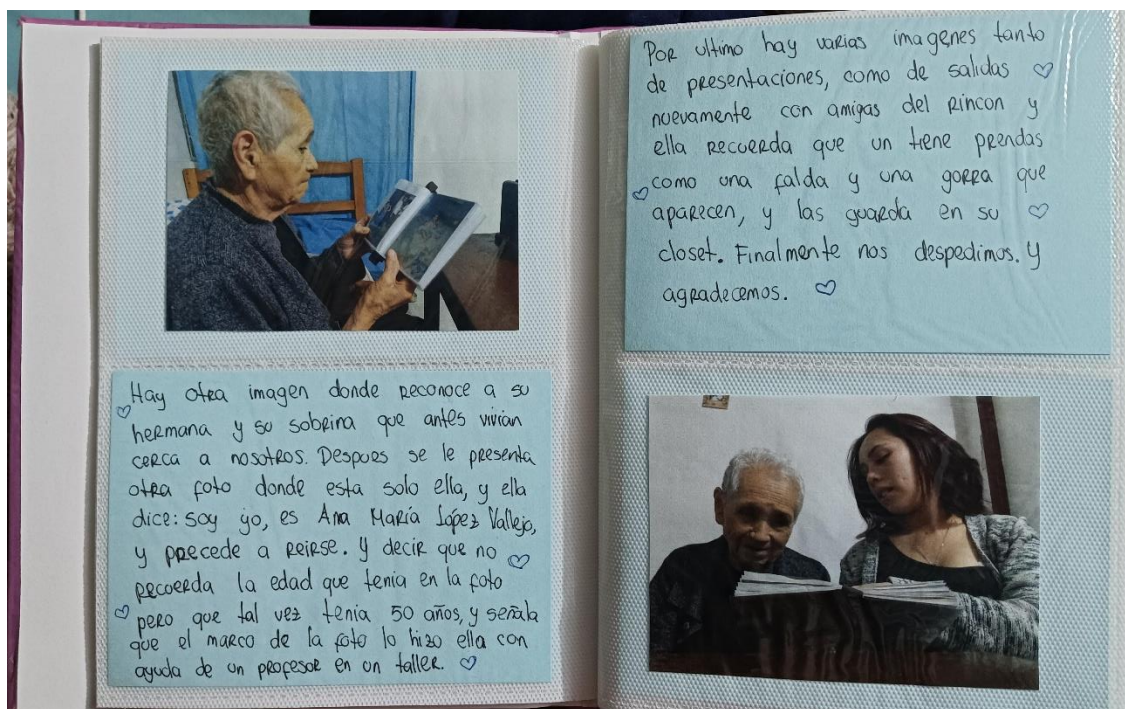 Hay otra imagen donde reconoce a su
hermana y su sobrina que antes vivian
cerca a nosotros. Despues se le presenta
otra foto donde esta solo ella, y ella
dice: soy yo, es Ana María López Vallejo,
y precede a reirse. y decir que no
recuerda la edad que tenia en la foto
pero que tal vez tenia 50 años, y señala
que el marco de la foto lo hizo ella con
ayuda de un profesor en un taller.
Por ultimo hay varias imagenes tanto
de presentaciones, como de salidas
nuevamente con amigas del rincon y
ella recuerda que un tiene prendas
como una falda y una gorra que
aparecen, y las guarda en su
closet. Finalmente nos despedimos. y
agradecemos.